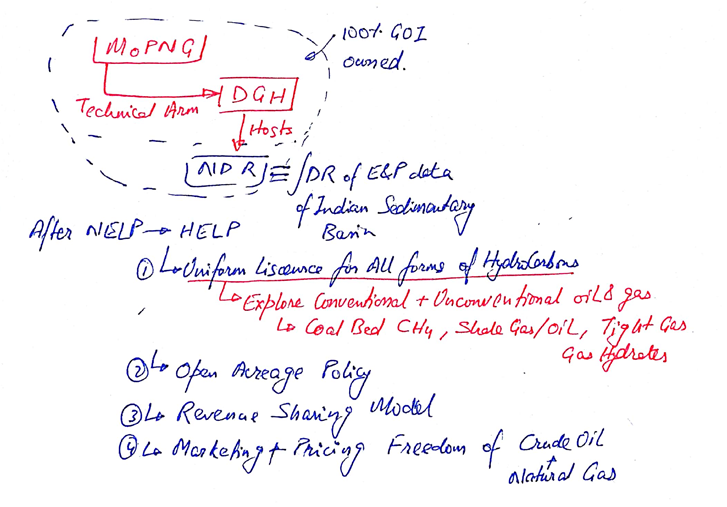 MoPNG
100% GOI
owned.
Technical Arm
DGH
Hosts
NDR ≡ ∫DR of E&P data
of Indian Sedimentary
Basin
After NELP → HELP
① ↳ Uniform Liscence for All forms of HydroCarbons
↳ Explore Conventional + Unconventional oil & gas
↳ Coal Bed CH4, Shale Gas/Oil, Tight Gas
Gas Hydrates
② ↳ Open Acreage Policy
③ ↳ Revenue Sharing Model
④ ↳ Marketing + Pricing Freedom of Crude Oil
Natural Gas